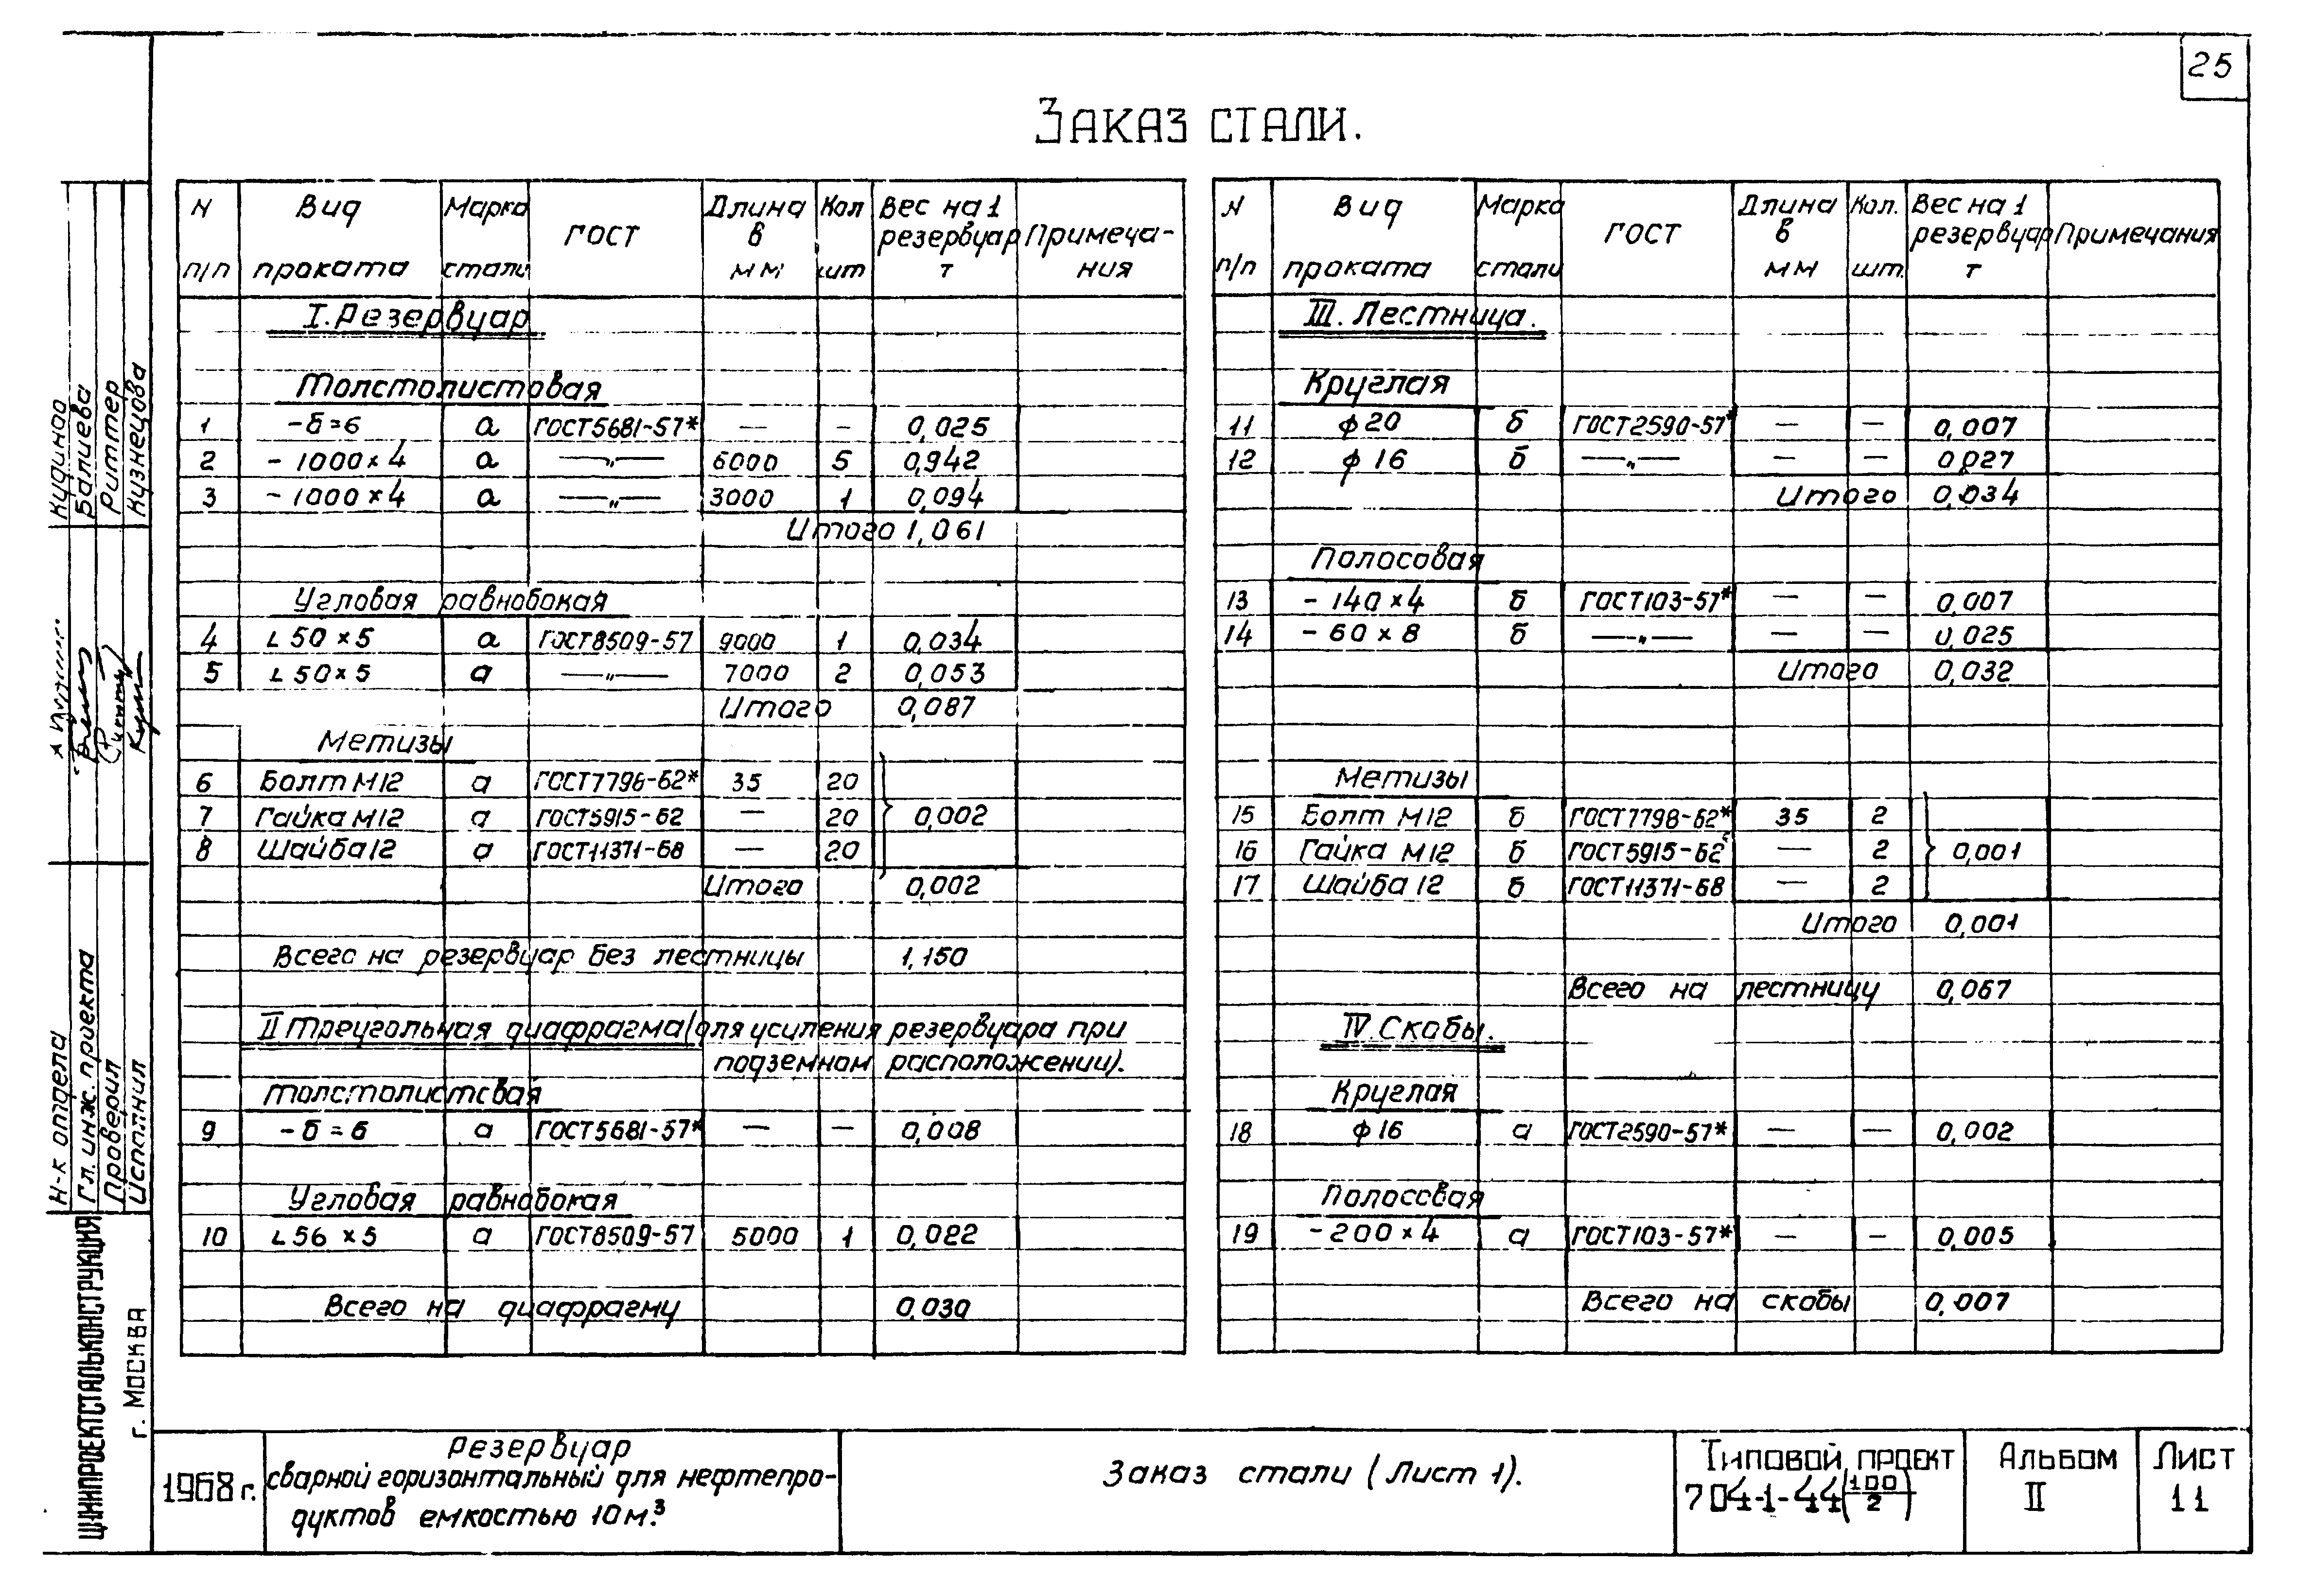 25
Заказ стали.
N п/п | Вид проката | Марка стали | ГОСТ | Длина в мм | Кол шт | Вес на 1 резервуар т | Примечания
I. Резервуар
Толстолистовая
1 | -δ=6 | а | ГОСТ5681-57* | — | - | 0,025
2 | -1000×4 | а | —„— | 6000 | 5 | 0,942
3 | -1000×4 | а | —„— | 3000 | 1 | 0,094
Итого 1,061
Угловая равнобокая
4 | L 50×5 | а | ГОСТ8509-57 | 9000 | 1 | 0,034
5 | L 50×5 | а | —„— | 7000 | 2 | 0,053
Итого 0,087
Метизы
6 | Болт М12 | а | ГОСТ7796-62* | 35 | 20
7 | Гайка М12 | а | ГОСТ5915-62 | — | 20 | 0,002
8 | Шайба 12 | а | ГОСТ11371-68 | — | 20
Итого 0,002
Всего на резервуар без лестницы 1,150
II Треугольная диафрагма (для усиления резервуара при
подземном расположении).
Толстолистовая
9 | -δ=6 | а | ГОСТ5681-57* | — | — | 0,008
Угловая равнобокая
10 | L 56×5 | а | ГОСТ8509-57 | 5000 | 1 | 0,022
Всего на диафрагму 0,030
N п/п | Вид проката | Марка стали | ГОСТ | Длина в мм | Кол. шт. | Вес на 1 резервуар т | Примечания
III. Лестница.
Круглая
11 | ϕ20 | б | ГОСТ2590-57* | — | — | 0,007
12 | ϕ16 | б | —„— | — | — | 0,027
Итого 0,034
Полосовая
13 | -140×4 | б | ГОСТ103-57* | — | — | 0,007
14 | -60×8 | б | —„— | — | — | 0,025
Итого 0,032
Метизы
15 | Болт М12 | б | ГОСТ7798-62* | 35 | 2
16 | Гайка М12 | б | ГОСТ5915-62 | — | 2 | 0,001
17 | Шайба 12 | б | ГОСТ11371-68 | — | 2
Итого 0,001
Всего на лестницу 0,067
IV. Скобы.
Круглая
18 | ϕ16 | а | ГОСТ2590-57* | — | — | 0,002
Полосовая
19 | -200×4 | а | ГОСТ103-57* | — | - | 0,005
Всего на скобы 0,007
Н-к отдела Кудинов
Гл. инж. проекта Балиева
Проверил Риттер
Исполнил Кузнецова
ЦНИИПРОЕКТСТАЛЬКОНСТРУКЦИЯ
г. Москва
1968 г.
Резервуар
сварной горизонтальный для нефтепро-
дуктов емкостью 10 м.³
Заказ стали (Лист 1).
Типовой проект
704-1-44(100/2)
Альбом
II
Лист
11